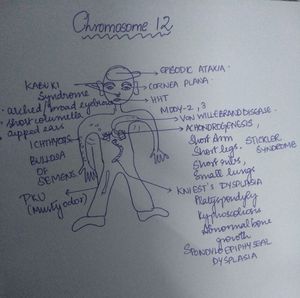 Chromosome 12
KABUKI
Syndrome
arched/broad eyebrow
short columella
cupped ears
ICHTHYOSIS
BULLOSA
OF
SIEMENS
PKU
(Musty odor)
EPISODIC ATAXIA
CORNEA PLANA
HHT
MODY-2, 3
VON WILLEBRAND DISEASE
ACHONDROGENESIS,
Short Arm
Short legs.
Short ribs,
Small lungs
STICKLER
SYNDROME
KNIEST'S DYSPLASIA
Platyspondyly
Kyphoscoliosis
Abnormal bone
growth
SPONDYLOEPIPHYSEAL
DYSPLASIA